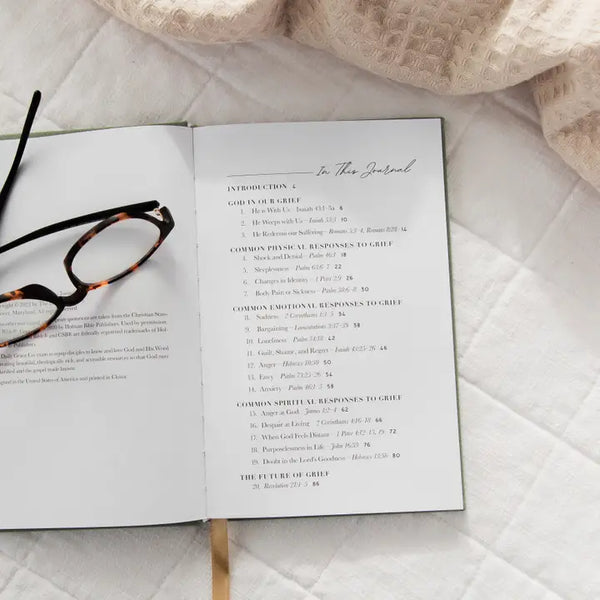 quotations are taken from the Christian Stan-
by Holman Bible Publishers. Used by permission.
and CSB® are federally registered trademarks of Hol-
Publishers
Daily Grace Co. exists to equip disciples to know and love God and His Word
beautiful, theologically rich, and accessible resources so that God may
glorified and the gospel made known.
in the United States of America and printed in China.
In This Journal
INTRODUCTION 4
GOD IN OUR GRIEF
1. He is With Us – Isaiah 43:1–3a 6
2. He Weeps with Us – Isaiah 53:3 10
3. He Redeems our Suffering – Romans 5:3–4, Romans 8:28 14
COMMON PHYSICAL RESPONSES TO GRIEF
4. Shock and Denial – Psalm 46:1 18
5. Sleeplessness – Psalm 63:6–7 22
6. Changes in Identity – 1 Peter 2:9 26
7. Body Pain or Sickness – Psalm 38:6–8 30
COMMON EMOTIONAL RESPONSES TO GRIEF
8. Sadness – 2 Corinthians 1:3–5 34
9. Bargaining – Lamentations 3:37–39 38
10. Loneliness – Psalm 34:18 42
11. Guilt, Shame, and Regret – Isaiah 43:25–26 46
12. Anger – Hebrews 10:30 50
13. Envy – Psalm 73:25–26 54
14. Anxiety – Psalm 46:1–3 58
COMMON SPIRITUAL RESPONSES TO GRIEF
15. Anger at God – James 1:2–4 62
16. Despair at Living – 2 Corinthians 4:16–18 66
17. When God Feels Distant – 1 Peter 4:12–13, 19 72
18. Purposelessness in Life – John 16:33 76
19. Doubt in the Lord's Goodness – Hebrews 13:5b 80
THE FUTURE OF GRIEF
20. Revelation 21:1–5 86